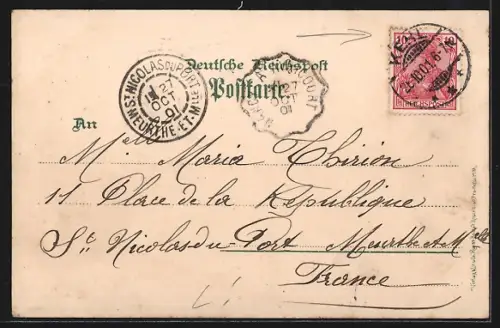 Deutsche Reichspost
Postkarte
ST NICOLAS DU PORT
27
OCT
01
MEURTHE-ET-M
COURT
27
OCT
01
10
KEHL
26.10.01.6-7N.
REICHSPOST
An
Melle Maria Thirion
11 Place de la République
St Nicolas du Port Meurthe et Mlle
France